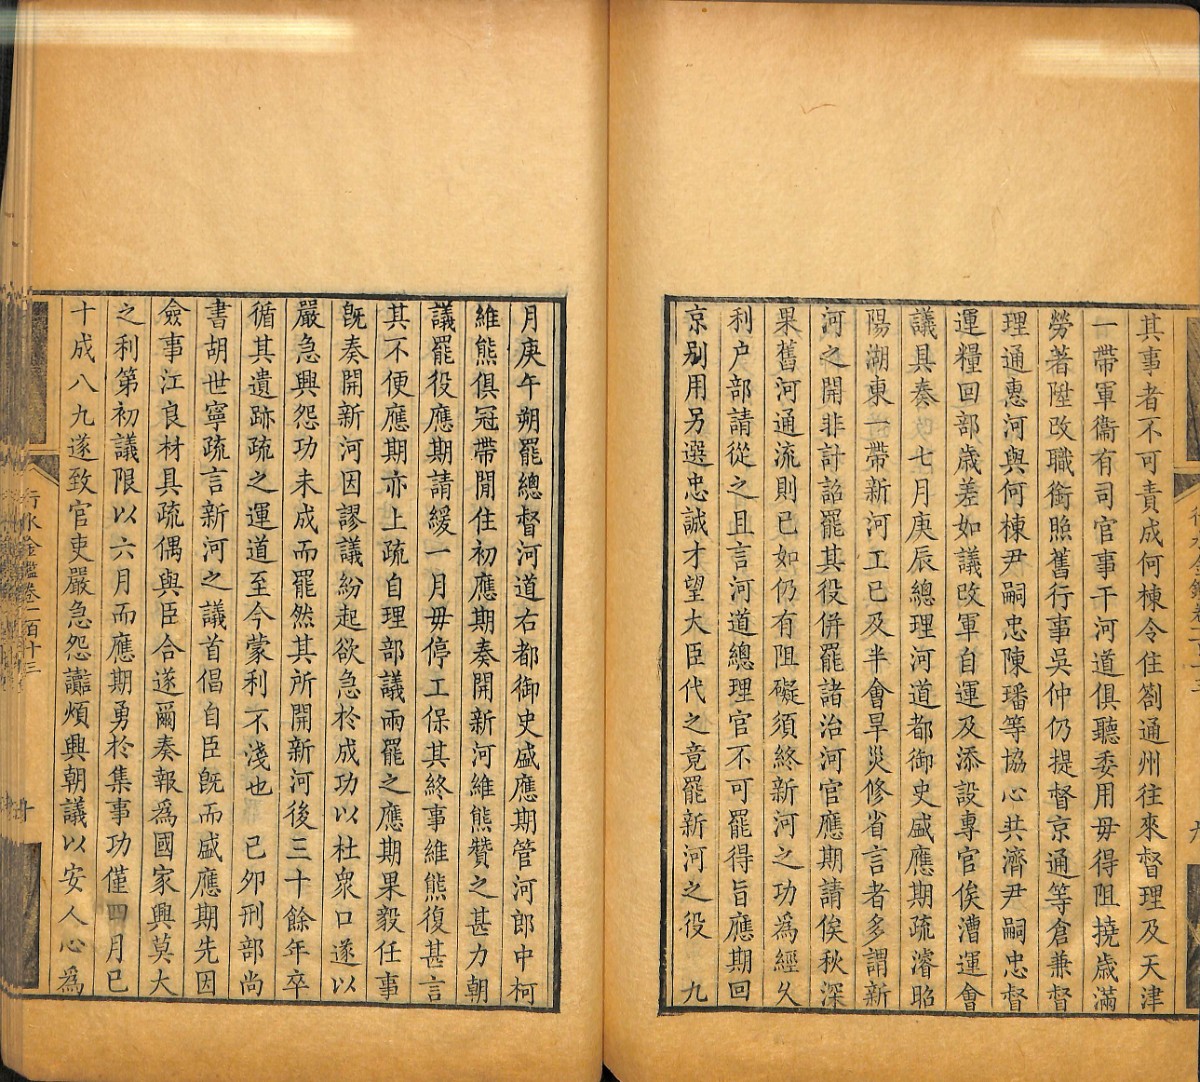 其事者不可責成何棟令住劄通州往來督理及天津
一帶軍衞有司官事干河道俱聽委用毋得阻撓歲滿
勞著陞改職銜照舊行事吳仲仍提督京通等倉兼督
理通惠河與何棟尹嗣忠陳璠等協心共濟尹嗣忠督
運糧回部歲差如議改軍自運及添設專官俟漕運會
議具奏　七月庚辰總理河道都御史盛應期疏濬昭
陽湖東一帶新河工已及半會旱災修省言者多謂新
河之開非計詔罷其役併罷諸治河官應期請俟秋深
果舊河通流則已如仍有阻礙須終新河之功爲經久
利户部請從之且言河道總理官不可罷得旨應期回
京别用另選忠誠才望大臣代之竟罷新河之役　九
月庚午朔罷總督河道右都御史盛應期管河郎中柯
維熊俱冠帶閒住初應期奏開新河維熊贊之甚力朝
議罷役應期請緩一月毋停工保其終事維熊復甚言
其不便應期亦上疏自理部議兩罷之應期果毅任事
旣奏開新河因謬議紛起欲急於成功以杜衆口遂以
嚴急興怨功未成而罷然其所開新河後三十餘年卒
循其遺跡疏之運道至今蒙利不淺也　己夘刑部尚
書胡世寧疏言新河之議首倡自臣旣而盛應期先因
僉事江良材具疏偶與臣合遂爾奏報爲國家興莫大
之利第初議限以六月而應期勇於集事功僅四月已
十成八九遂致官吏嚴急怨讟煩興朝議以安人心爲
行水金鑑卷一百十三
十